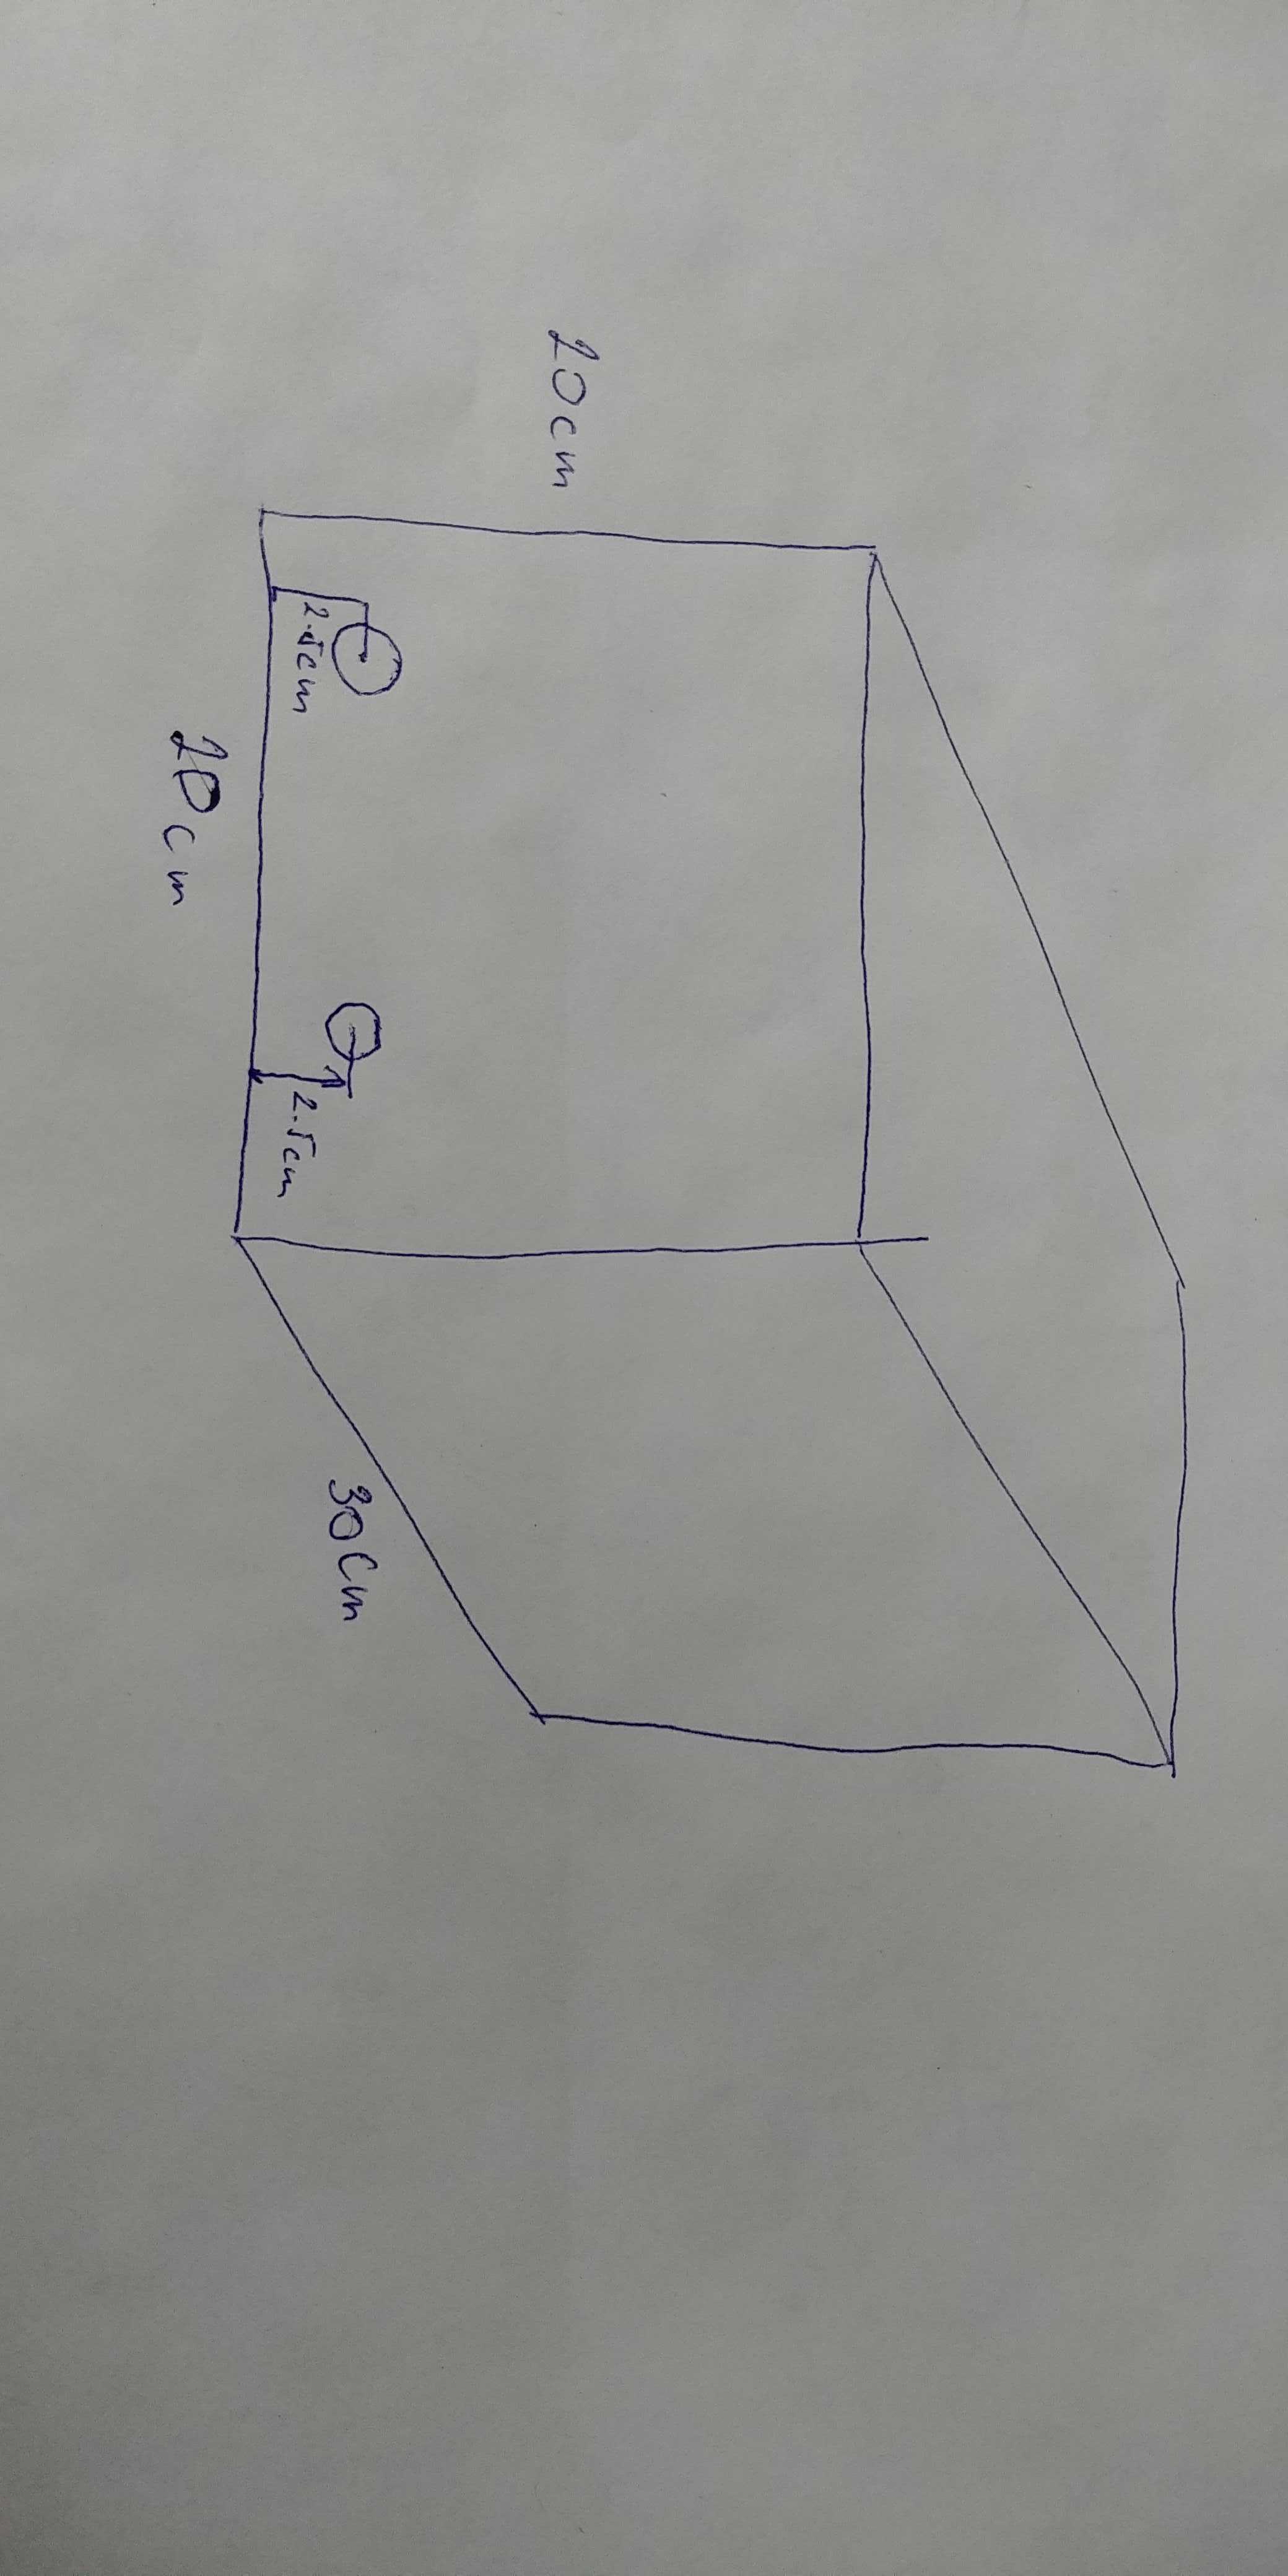 20cm
2.5cm
2.5cm
20cm
30cm